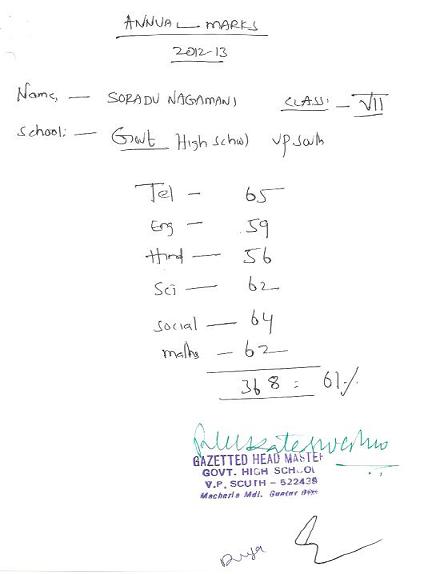 ANNUAL MARKS
2012-13
Name, — SORADU NAGAMANI CLASS: — VII
School: — Govt High School VP South
Tel — 65
Eng — 59
Hind — 56
Sci — 62
Social — 64
maths — 62
368 = 61%
GAZETTED HEAD MASTER
GOVT. HIGH SCHOOL
V.P. SOUTH - 522438
Macharla Mdl. Guntur